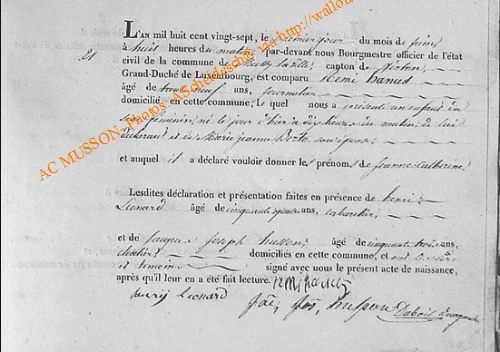 21
L'AN mil huit cent vingt-sept, le jour du mois de
à huit heures du matin par-devant nous Bourgmestre officier de l'état
civil de la commune de la ville, canton de
Grand-Duché de Luxembourg, est comparu henri
âgé de trente neuf ans, journalier
domicilié en cette commune, le quel nous a présenté un enfant du
sexe féminin, né le jour d'hier à dix heures du matin, de lui
déclarant et de Marie jeanne son épouse
et auquel il a déclaré vouloir donner les prénoms de Jeanne Catherine
Lesdites déclaration et présentation faites en présence de henri
Léonard âgé de cinquante ans, cabaretier,
et de jacques joseph husson âgé de cinquante trois ans,
domiciliés en cette commune, et
et témoins signé avec nous le présent acte de naissance,
après qu'il leur en a été fait lecture.
henry Léonard
jos, husson Dubois
AC MUSSON- Photos: ASchelesche via http://wallo